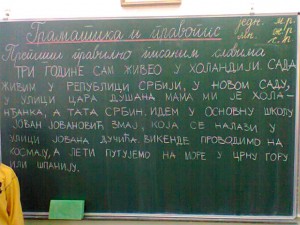 Граматика и правопис
једн. м.р.
мн. ж.р.
с.р.
Препиши правилно писаним словима
ТРИ ГОДИНЕ САМ ЖИВЕО У ХОЛАНДИЈИ. САДА
ЖИВИМ У РЕПУБЛИЦИ СРБИЈИ, У НОВОМ САДУ,
У УЛИЦИ ЦАРА ДУШАНА. МАМА МИ ЈЕ ХОЛА-
НЂАНКА, А ТАТА СРБИН. ИДЕМ У ОСНОВНУ ШКОЛУ
ЈОВАН ЈОВАНОВИЋ ЗМАЈ, КОЈА СЕ НАЛАЗИ У
УЛИЦИ ЈОВАНА ДУЧИЋА. ВИКЕНДЕ ПРОВОДИМО НА
КОСМАЈУ, А ЛЕТИ ПУТУЈЕМО НА МОРЕ У ЦРНУ ГОРУ
ИЛИ ШПАНИЈУ.